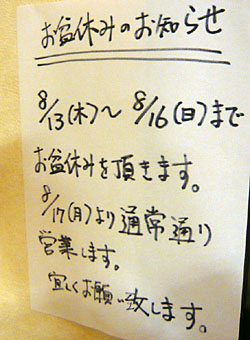 お盆休みのお知らせ
8/13(木)～8/16(日)まで
お盆休みを頂きます。
8/17(月)より通常通り
営業します。
宜しくお願い致します。